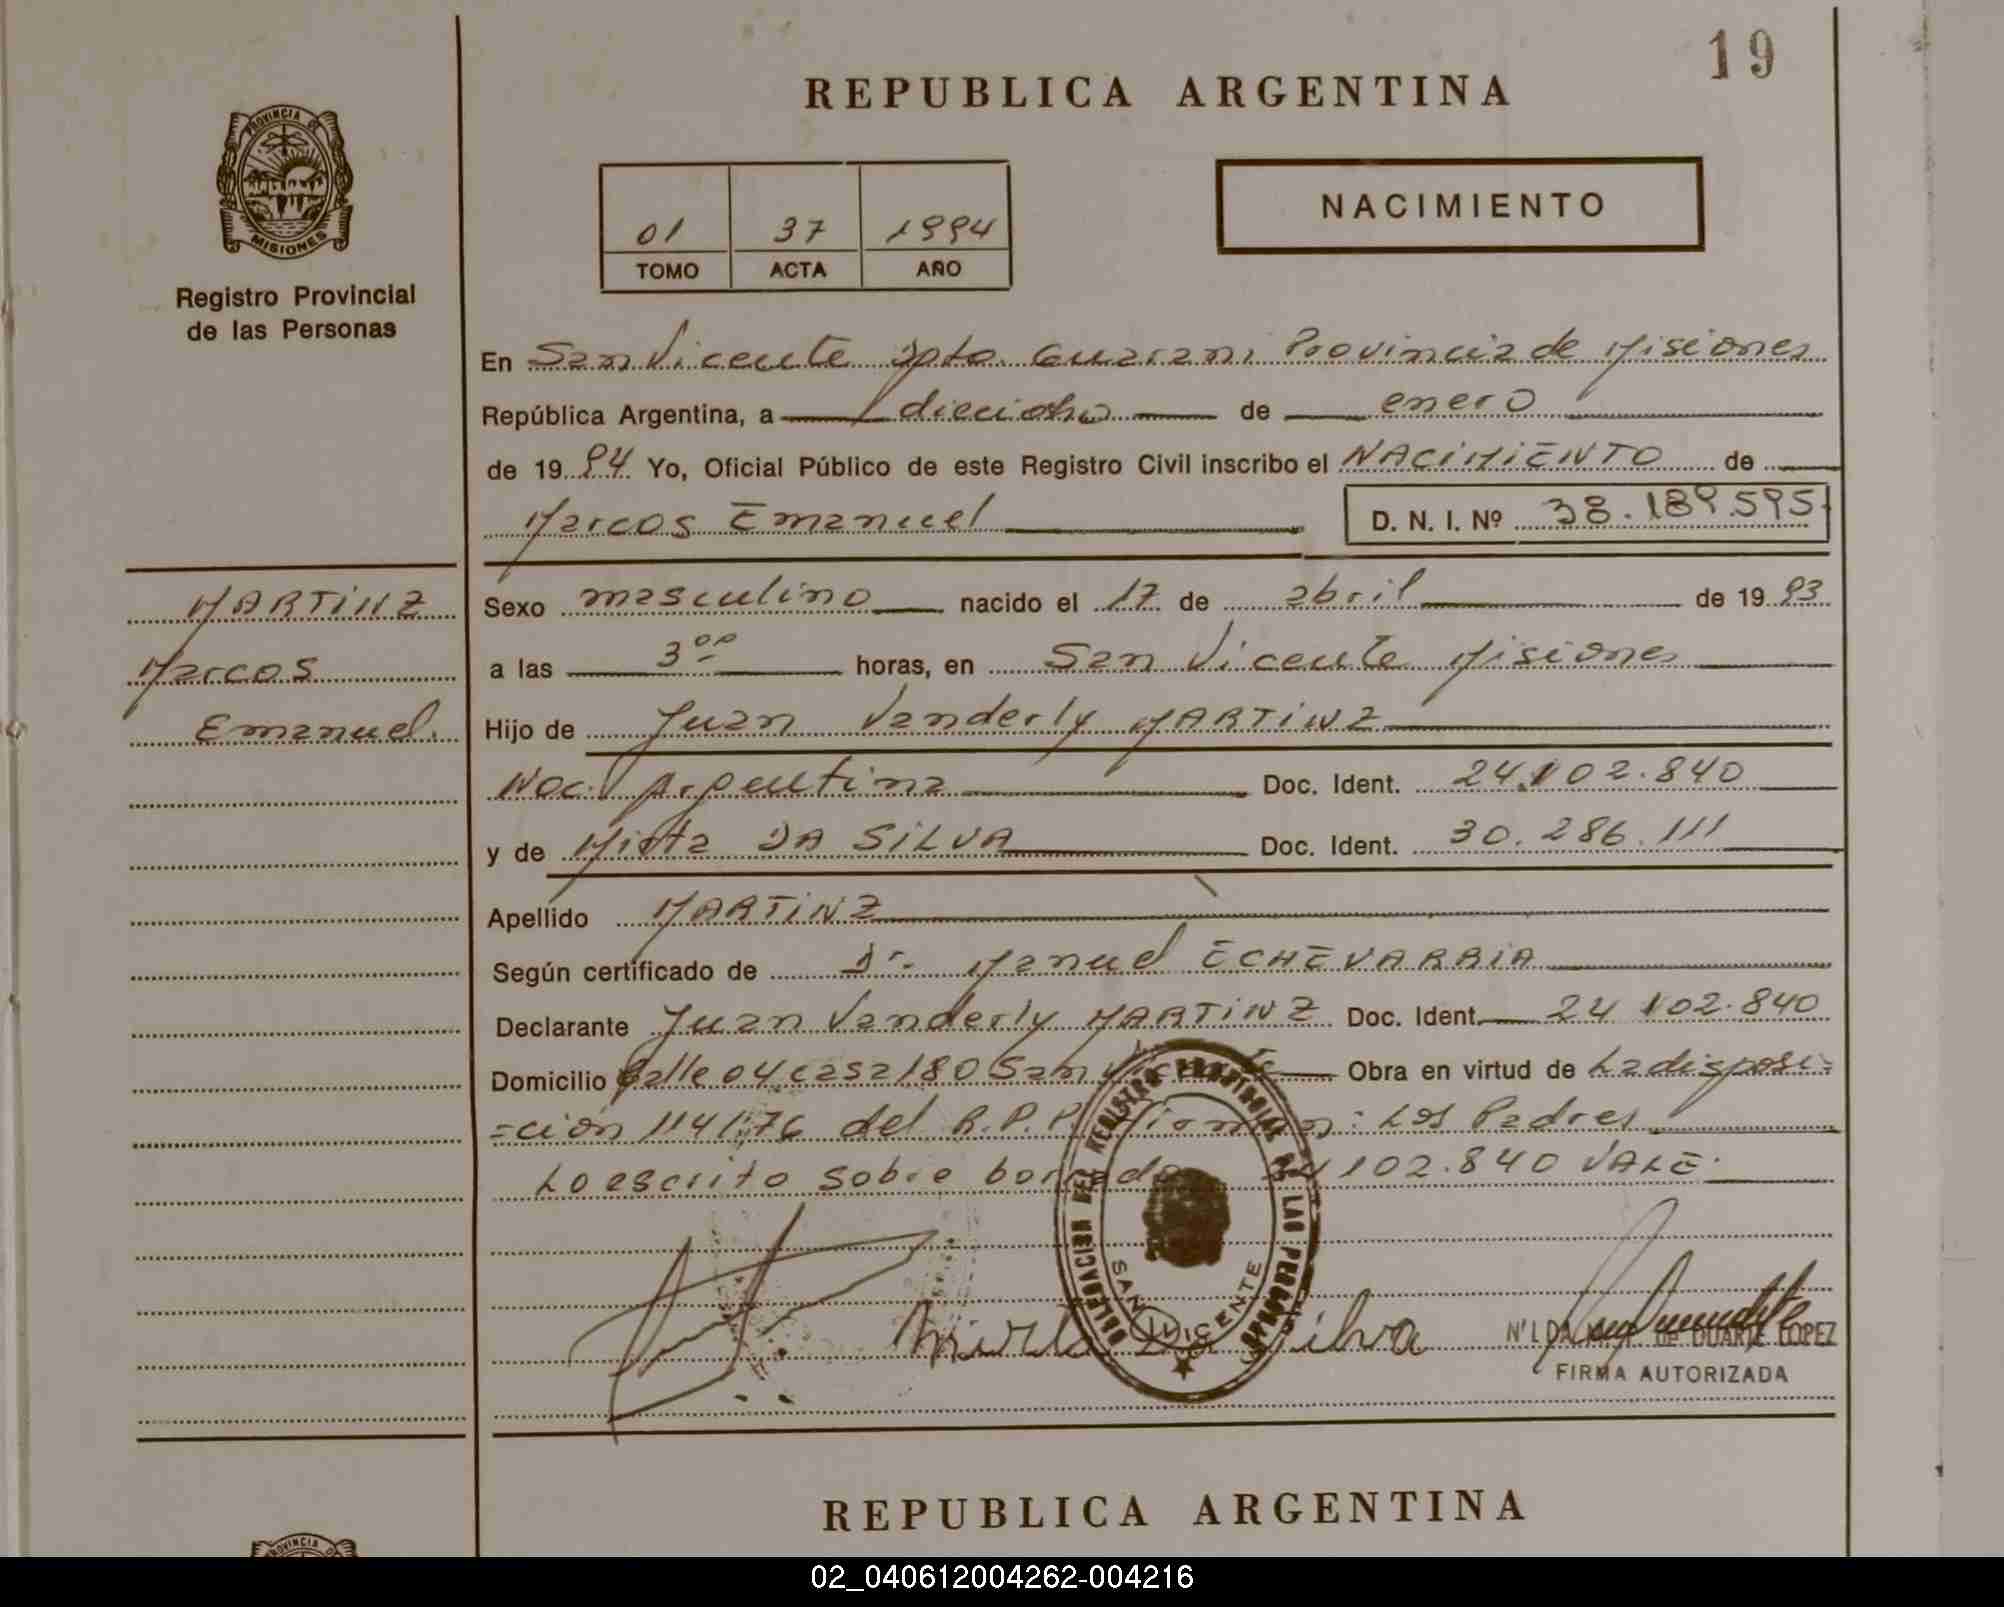 19
REPUBLICA ARGENTINA
PROVINCIA DE
MISIONES
Registro Provincial
de las Personas
01 37 1994
TOMO ACTA AÑO
NACIMIENTO
En San Vicente Dpto. Guarani Provincia de Misiones
República Argentina, a dieciocho de enero
de 1994 Yo, Oficial Público de este Registro Civil inscribo el NACIMIENTO de
Marcos Emanuel D. N. I. Nº 38.189.595
MARTINZ
Marcos
Emanuel.
Sexo masculino nacido el 17 de abril de 1993
a las 3 00 horas, en San Vicente Misiones
Hijo de Juan Vanderly MARTINZ
Nac. Argentina Doc. Ident. 24.102.840
y de DA SILVA Doc. Ident. 30.286.111
Apellido MARTINZ
Según certificado de Dr. Manuel ECHEVARRIA
Declarante Juan Vanderly MARTINZ Doc. Ident. 24 102.840
Domicilio Calle 04 casa 180 San Obra en virtud de La disposi=
=ción 1141/76 del R.P.P. Los Padres
Lo escrito sobre 24102.840 VALE.
DELEGACION DEL REGISTRO PROVINCIAL DE LAS PERSONAS
SAN VICENTE
Silva
DE DUARTE LOPEZ
FIRMA AUTORIZADA
REPUBLICA ARGENTINA
PROVINCIA D
02_040612004262-004216